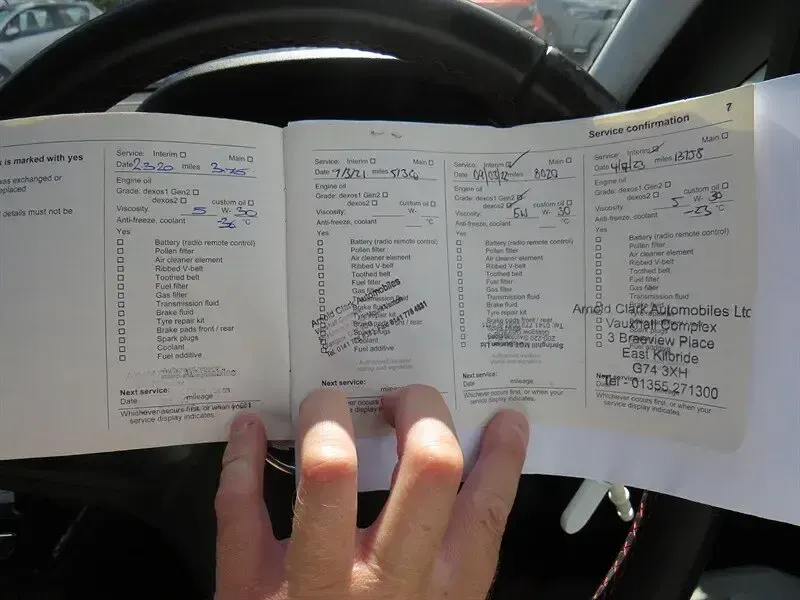 Service confirmation
7
k is marked with yes
as exchanged or
eplaced
details must not be
Service: Interim ☐ Main ☐
Date 2320 miles
Engine oil
Grade: dexos1 Gen2 ☐
dexos2 ☐ custom oil ☐
Viscosity: 5 W- 30
Anti-freeze, coolant -36 °C
Yes
☐ Battery (radio remote control)
☐ Pollen filter
☐ Air cleaner element
☐ Ribbed V-belt
☐ Toothed belt
☐ Fuel filter
☐ Gas filter
☐ Transmission fluid
☐ Brake fluid
☐ Tyre repair kit
☐ Brake pads front / rear
☐ Spark plugs
☐ Coolant
☐ Fuel additive
Next service:
Date mileage
Whichever occurs first, or when your
service display indicates.
Service: Interim ☐ Main ☐
Date 9/3/21 miles
Engine oil
Grade: dexos1 Gen2 ☐
dexos2 ☐ custom oil ☐
Viscosity: W-
Anti-freeze, coolant °C
Yes
☐ Battery (radio remote control)
☐ Pollen filter
☐ Air cleaner element
☐ Ribbed V-belt
☐ Toothed belt
☐ Fuel filter
☐ Gas filter
Transmission fluid
Brake fluid
Tyre repair kit
Brake pads front / rear
Spark plugs
Coolant
Fuel additive
Arnold Clark Automobiles
Next service:
Service: Interim ☐ Main ☐
Date miles 8020
Engine oil
Grade: dexos1 Gen2 ☐
dexos2 ☐ custom oil ☐
Viscosity: 5W W- 30
Anti-freeze, coolant °C
Yes
☐ Battery (radio remote control)
☐ Pollen filter
☐ Air cleaner element
☐ Ribbed V-belt
☐ Toothed belt
☐ Fuel filter
☐ Gas filter
☐ Transmission fluid
☐ Brake fluid
☐ Tyre repair kit
☐ Brake pads front / rear
☐ Spark plugs
☐ Coolant
☐ Fuel additive
Next service:
Date mileage
Whichever occurs first, or when your
service display indicates.
Service: Interim ☐ Main ☐
Date 4/7/23 miles 13258
Engine oil
Grade: dexos1 Gen2 ☐
dexos2 ☐ custom oil ☐
Viscosity: 5 W- 30
Anti-freeze, coolant -23 °C
Yes
☐ Battery (radio remote control)
☐ Pollen filter
☐ Air cleaner element
☐ Ribbed V-belt
☐ Toothed belt
☐ Fuel filter
☐ Gas filter
Transmission fluid
Arnold Clark Automobiles Ltd
Vauxhall Complex
3 Braeview Place
East Kilbride
G74 3XH
Tel - 01355 271300
Next service:
Date mileage
Whichever occurs first, or when your
service display indicates.